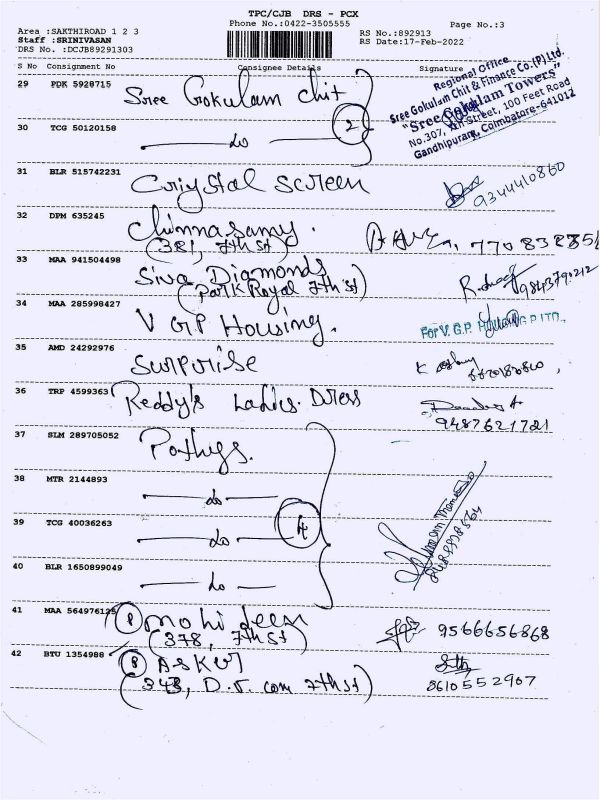 TPC/CJB DRS - PCX
Phone No.:0422-3505555
Page No.:3
Area :SAKTHIROAD 1 2 3
Staff :SRINIVASAN
DRS No. :DCJB89291303
RS No.:892913
RS Date:17-Feb-2022
S No Consignment No Consignee Details Signature
Regional Office
Sree Gokulam Chit & Finance Co.(P) Ltd.
"Sree Gokulam Towers"
No.307, Street, 100 Feet Road
Gandhipuram, Coimbatore-641012
29 PDK 5928715 Sree Gokulam chit
2
30 TCG 50120158 do
31 BLR 515742231 Criystal screen 9344410860
32 DPM 635245 Chinnasamy.
(381, 7th st)
33 MAA 941504498 Siva Diamonds
(Park Royal 7th st)
34 MAA 285998427 V GP Housing. For V. G.P.
35 AMD 24292976 Surprise
36 TRP 4599363 Reddy's Ladies. Dress
9487621721
37 SLM 289705052 Pothys.
38 MTR 2144893 do
4
39 TCG 40036263 do
40 BLR 1650899049 do
41 MAA 56497612 mohideen 9566656868
(378, 7th st)
42 BTU 1354988
8610552907